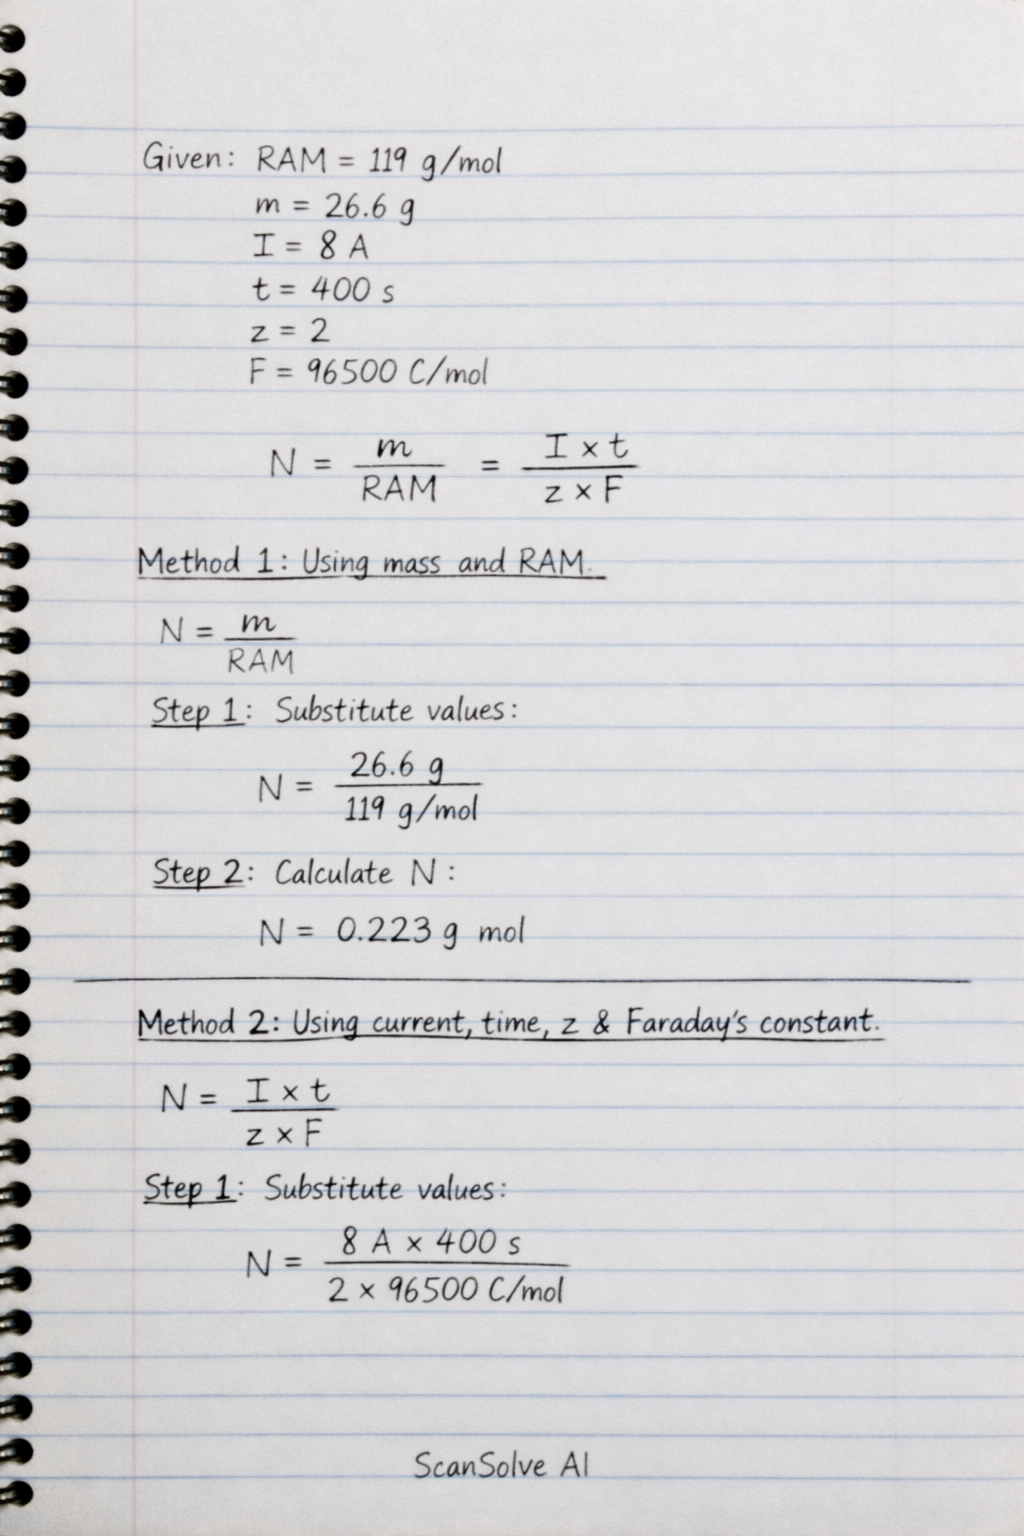 Given: RAM = 119 g/mol
m = 26.6 g
I = 8 A
t = 400 s
z = 2
F = 96500 C/mol
N = m/RAM = I × t/z × F
Method 1: Using mass and RAM.
N = m/RAM
Step 1: Substitute values:
N = 26.6 g/119 g/mol
Step 2: Calculate N:
N = 0.223 g mol
Method 2: Using current, time, z & Faraday's constant.
N = I × t/z × F
Step 1: Substitute values:
N = 8 A × 400 s/2 × 96500 C/mol
ScanSolve AI